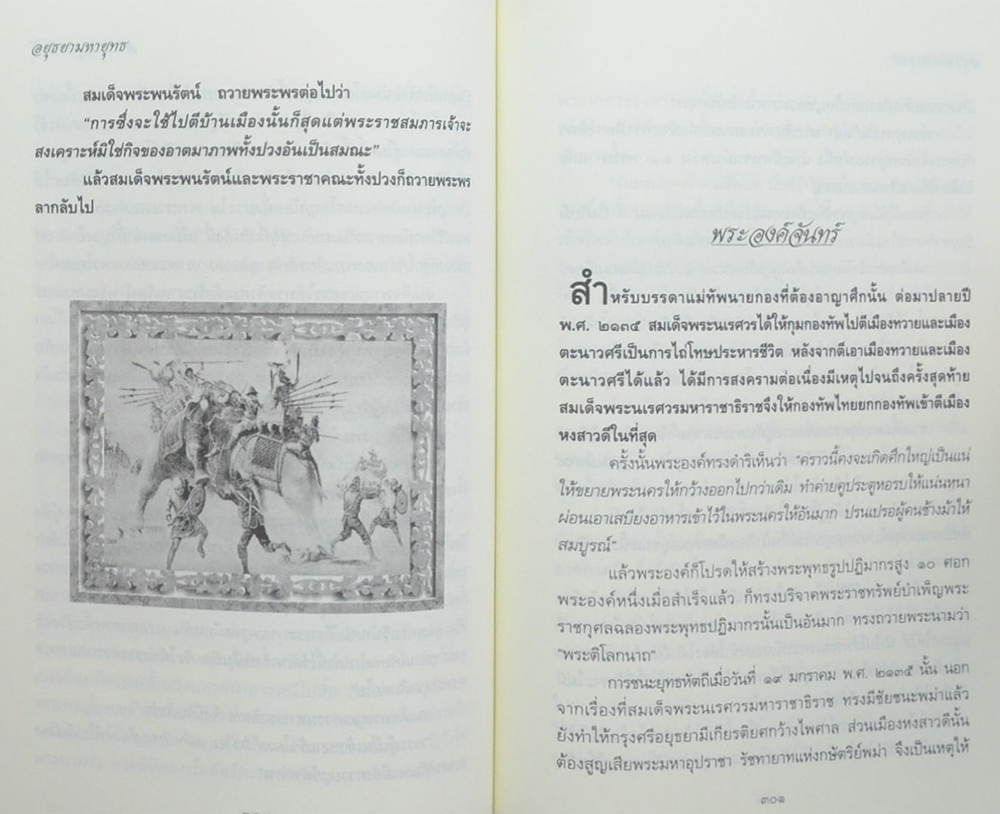 อยุธยามหายุทธ
สมเด็จพระพนรัตน์ ถวายพระพรต่อไปว่า
“การซึ่งจะใช้ไปตีบ้านเมืองนั้นก็สุดแต่พระราชสมภารเจ้าจะ
สงเคราะห์มิใช่กิจของอาตมาภาพทั้งปวงอันเป็นสมณะ”
แล้วสมเด็จพระพนรัตน์และพระราชาคณะทั้งปวงก็ถวายพระพร
ลากลับไป
พระองค์จันทร์
สำหรับบรรดาแม่ทัพนายกองที่ต้องอาญาศึกนั้น ต่อมาปลายปี
พ.ศ. ๒๑๓๕ สมเด็จพระนเรศวรได้ให้กุมกองทัพไปตีเมืองทวายและเมือง
ตะนาวศรีเป็นการไถ่โทษประหารชีวิต หลังจากตีเอาเมืองทวายและเมือง
ตะนาวศรีได้แล้ว ได้มีการสงครามต่อเนื่องมีเหตุไปจนถึงครั้งสุดท้าย
สมเด็จพระนเรศวรมหาราชาธิราชจึงให้กองทัพไทยยกกองทัพเข้าตีเมือง
หงสาวดีในที่สุด
ครั้งนั้นพระองค์ทรงดำริเห็นว่า “คราวนี้คงจะเกิดศึกใหญ่เป็นแน่
ให้ขยายพระนครให้กว้างออกไปกว่าเดิม ทำค่ายคูประตูหอรบให้แน่นหนา
ผ่อนเอาเสบียงอาหารเข้าไว้ในพระนครให้อันมาก ปรนเปรอผู้คนช้างม้าให้
สมบูรณ์”
แล้วพระองค์ก็โปรดให้สร้างพระพุทธรูปปฏิมากรสูง ๑๐ ศอก
พระองค์หนึ่งเมื่อสำเร็จแล้ว ก็ทรงบริจาคพระราชทรัพย์บำเพ็ญพระ
ราชกุศลฉลองพระพุทธปฏิมากรนั้นเป็นอันมาก ทรงถวายพระนามว่า
“พระติโลกนาถ”
การชนะยุทธหัตถีเมื่อวันที่ ๑๙ มกราคม พ.ศ. ๒๑๓๕ นั้น นอก
จากเรื่องที่สมเด็จพระนเรศวรมหาราชาธิราช ทรงมีชัยชนะพม่าแล้ว
ยังทำให้กรุงศรีอยุธยามีเกียรติยศกว้างไพศาล ส่วนเมืองหงสาวดีนั้น
ต้องสูญเสียพระมหาอุปราชา รัชทายาทแห่งกษัตริย์พม่า จึงเป็นเหตุให้
๓๐๑